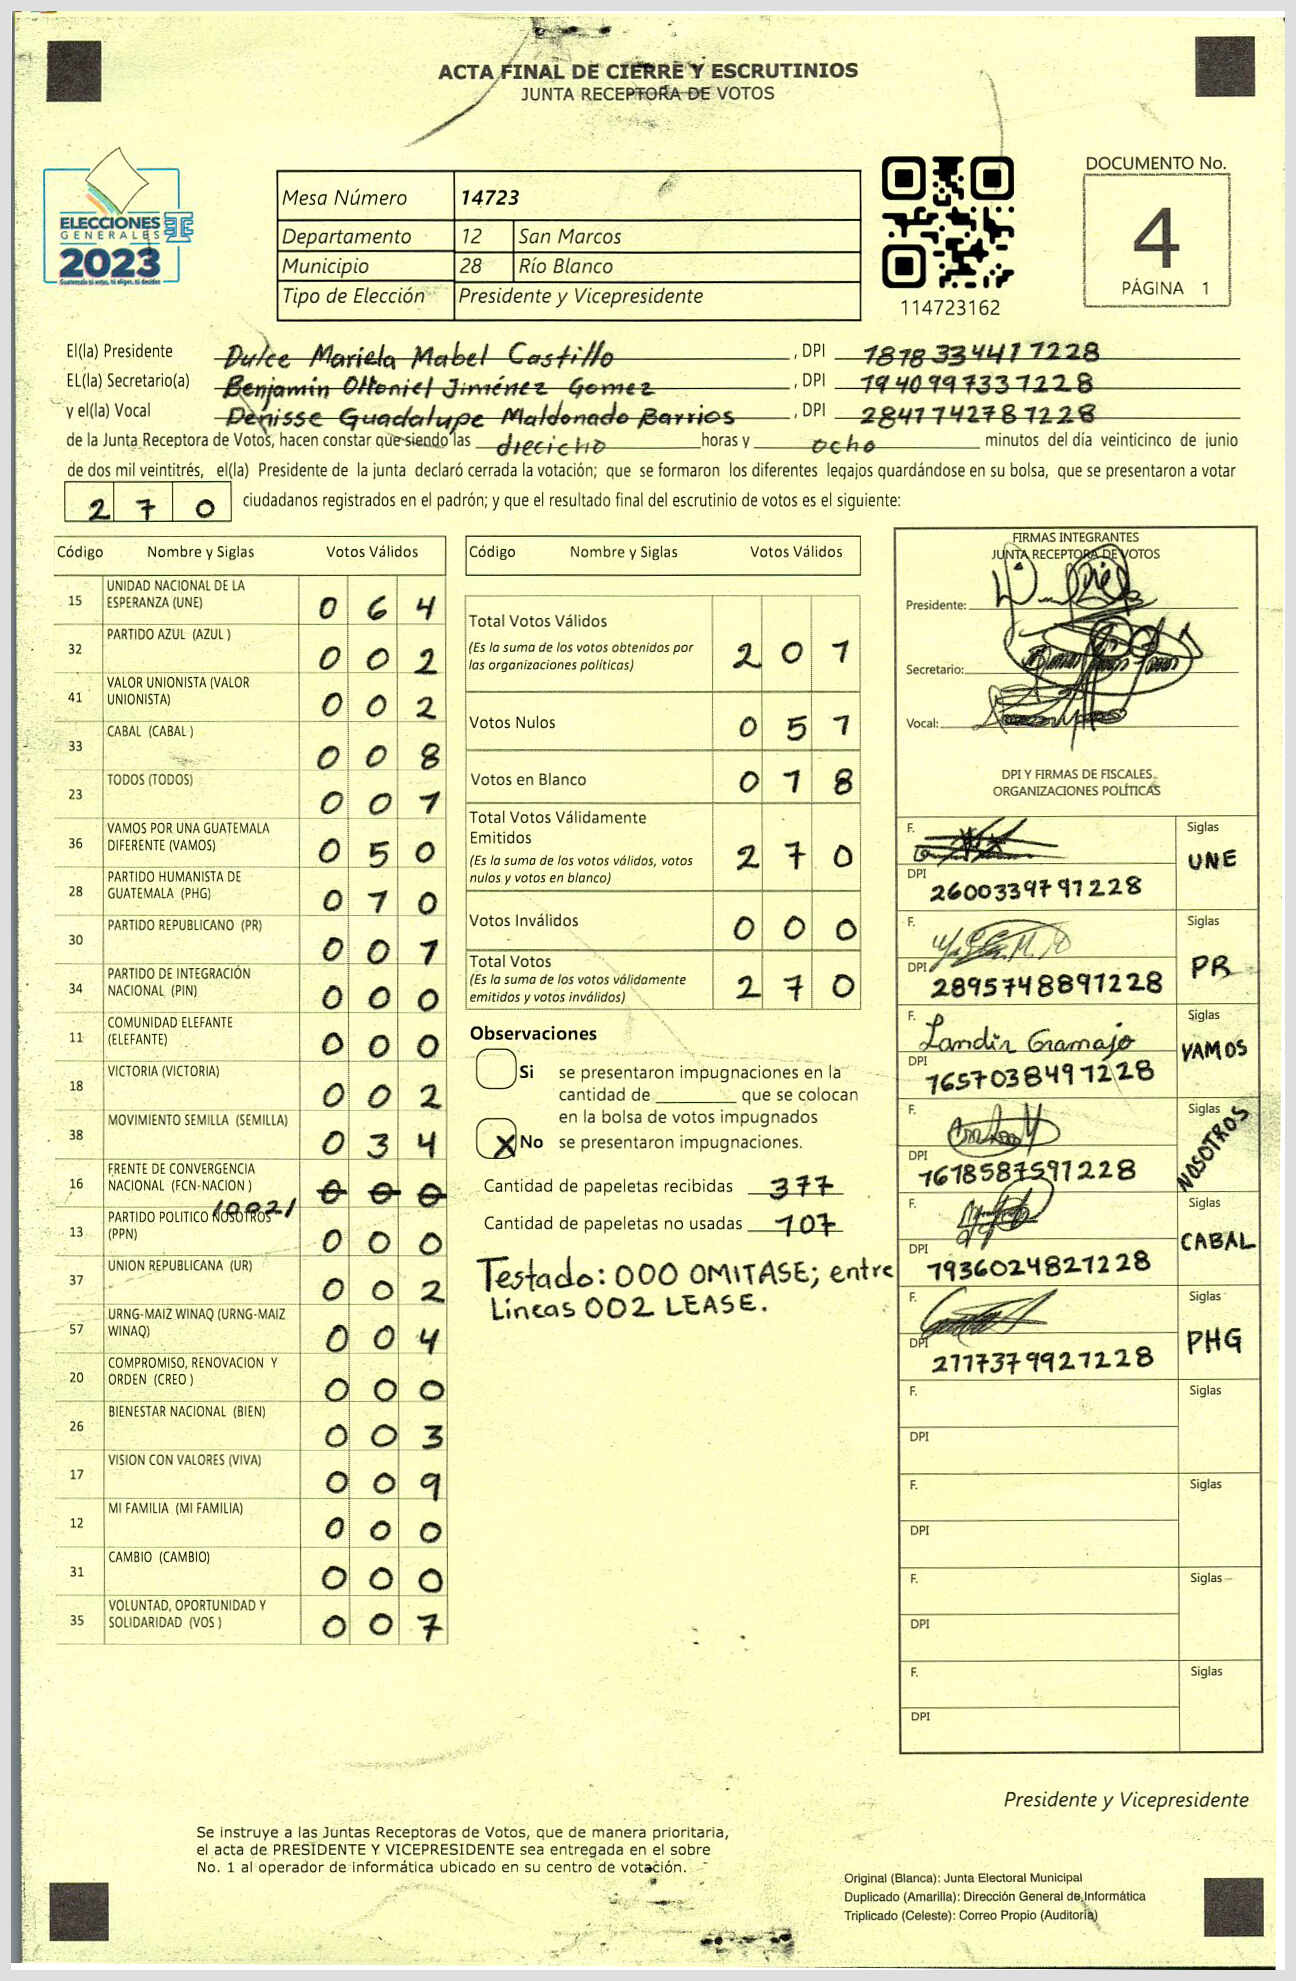 ACTA FINAL DE CIERRE Y ESCRUTINIOS
JUNTA RECEPTORA DE VOTOS
ELECCIONES
GENERALES
2023
Mesa Número 14723
Departamento 12 San Marcos
Municipio 28 Río Blanco
Tipo de Elección Presidente y Vicepresidente
114723162
DOCUMENTO No.
4
PÁGINA 1
El(la) Presidente Dulce Mariela Mabel Castillo, DPI 1878334417228
EL(la) Secretario(a) Benjamín Ottoniel Jiménez Gomez, DPI 1940997337228
y el(la) Vocal Denisse Guadalupe Maldonado Barrios, DPI 2841742787228
de la Junta Receptora de Votos, hacen constar que siendo las diecicho horas y ocho minutos del día veinticinco de junio
de dos mil veintitrés, el(la) Presidente de la junta declaró cerrada la votación; que se formaron los diferentes legajos guardándose en su bolsa, que se presentaron a votar
270 ciudadanos registrados en el padrón; y que el resultado final del escrutinio de votos es el siguiente:
Código Nombre y Siglas Votos Válidos
15 UNIDAD NACIONAL DE LA ESPERANZA (UNE) 064
32 PARTIDO AZUL (AZUL ) 002
41 VALOR UNIONISTA (VALOR UNIONISTA) 002
33 CABAL (CABAL ) 008
23 TODOS (TODOS) 001
36 VAMOS POR UNA GUATEMALA DIFERENTE (VAMOS) 050
28 PARTIDO HUMANISTA DE GUATEMALA (PHG) 010
30 PARTIDO REPUBLICANO (PR) 001
34 PARTIDO DE INTEGRACIÓN NACIONAL (PIN) 000
11 COMUNIDAD ELEFANTE (ELEFANTE) 000
18 VICTORIA (VICTORIA) 002
38 MOVIMIENTO SEMILLA (SEMILLA) 034
16 FRENTE DE CONVERGENCIA NACIONAL (FCN-NACION ) 000
10021
13 PARTIDO POLITICO NOSOTROS (PPN) 000
37 UNION REPUBLICANA (UR) 002
57 URNG-MAIZ WINAQ (URNG-MAIZ WINAQ) 004
20 COMPROMISO, RENOVACION Y ORDEN (CREO ) 000
26 BIENESTAR NACIONAL (BIEN) 003
17 VISION CON VALORES (VIVA) 009
12 MI FAMILIA (MI FAMILIA) 000
31 CAMBIO (CAMBIO) 000
35 VOLUNTAD, OPORTUNIDAD Y SOLIDARIDAD (VOS ) 007
Código Nombre y Siglas Votos Válidos
Total Votos Válidos 201
(Es la suma de los votos obtenidos por
las organizaciones políticas)
Votos Nulos 051
Votos en Blanco 018
Total Votos Válidamente
Emitidos 270
(Es la suma de los votos válidos, votos
nulos y votos en blanco)
Votos Inválidos 000
Total Votos 270
(Es la suma de los votos válidamente
emitidos y votos inválidos)
Observaciones
Si se presentaron impugnaciones en la
cantidad de ________ que se colocan
en la bolsa de votos impugnados
X No se presentaron impugnaciones.
Cantidad de papeletas recibidas 377
Cantidad de papeletas no usadas 107
Testado: 000 OMITASE; entre
Líneas 002 LEASE.
FIRMAS INTEGRANTES
JUNTA RECEPTORA DE VOTOS
Presidente:
Secretario:
Vocal:
DPI Y FIRMAS DE FISCALES
ORGANIZACIONES POLÍTICAS
F. Siglas UNE
DPI 2600339791228
F. Siglas PR
DPI 2895748891228
F. Landir Gramajo Siglas VAMOS
DPI 1657038491228
F. Siglas NOSOTROS
DPI 1618587591228
F. Siglas CABAL
DPI 1936024821228
F. Siglas PHG
DPI 2117379921228
F. Siglas
DPI
F. Siglas
DPI
F. Siglas
DPI
F. Siglas
DPI
Presidente y Vicepresidente
Se instruye a las Juntas Receptoras de Votos, que de manera prioritaria,
el acta de PRESIDENTE Y VICEPRESIDENTE sea entregada en el sobre
No. 1 al operador de informática ubicado en su centro de votación.
Original (Blanca): Junta Electoral Municipal
Duplicado (Amarilla): Dirección General de Informática
Triplicado (Celeste): Correo Propio (Auditoría)